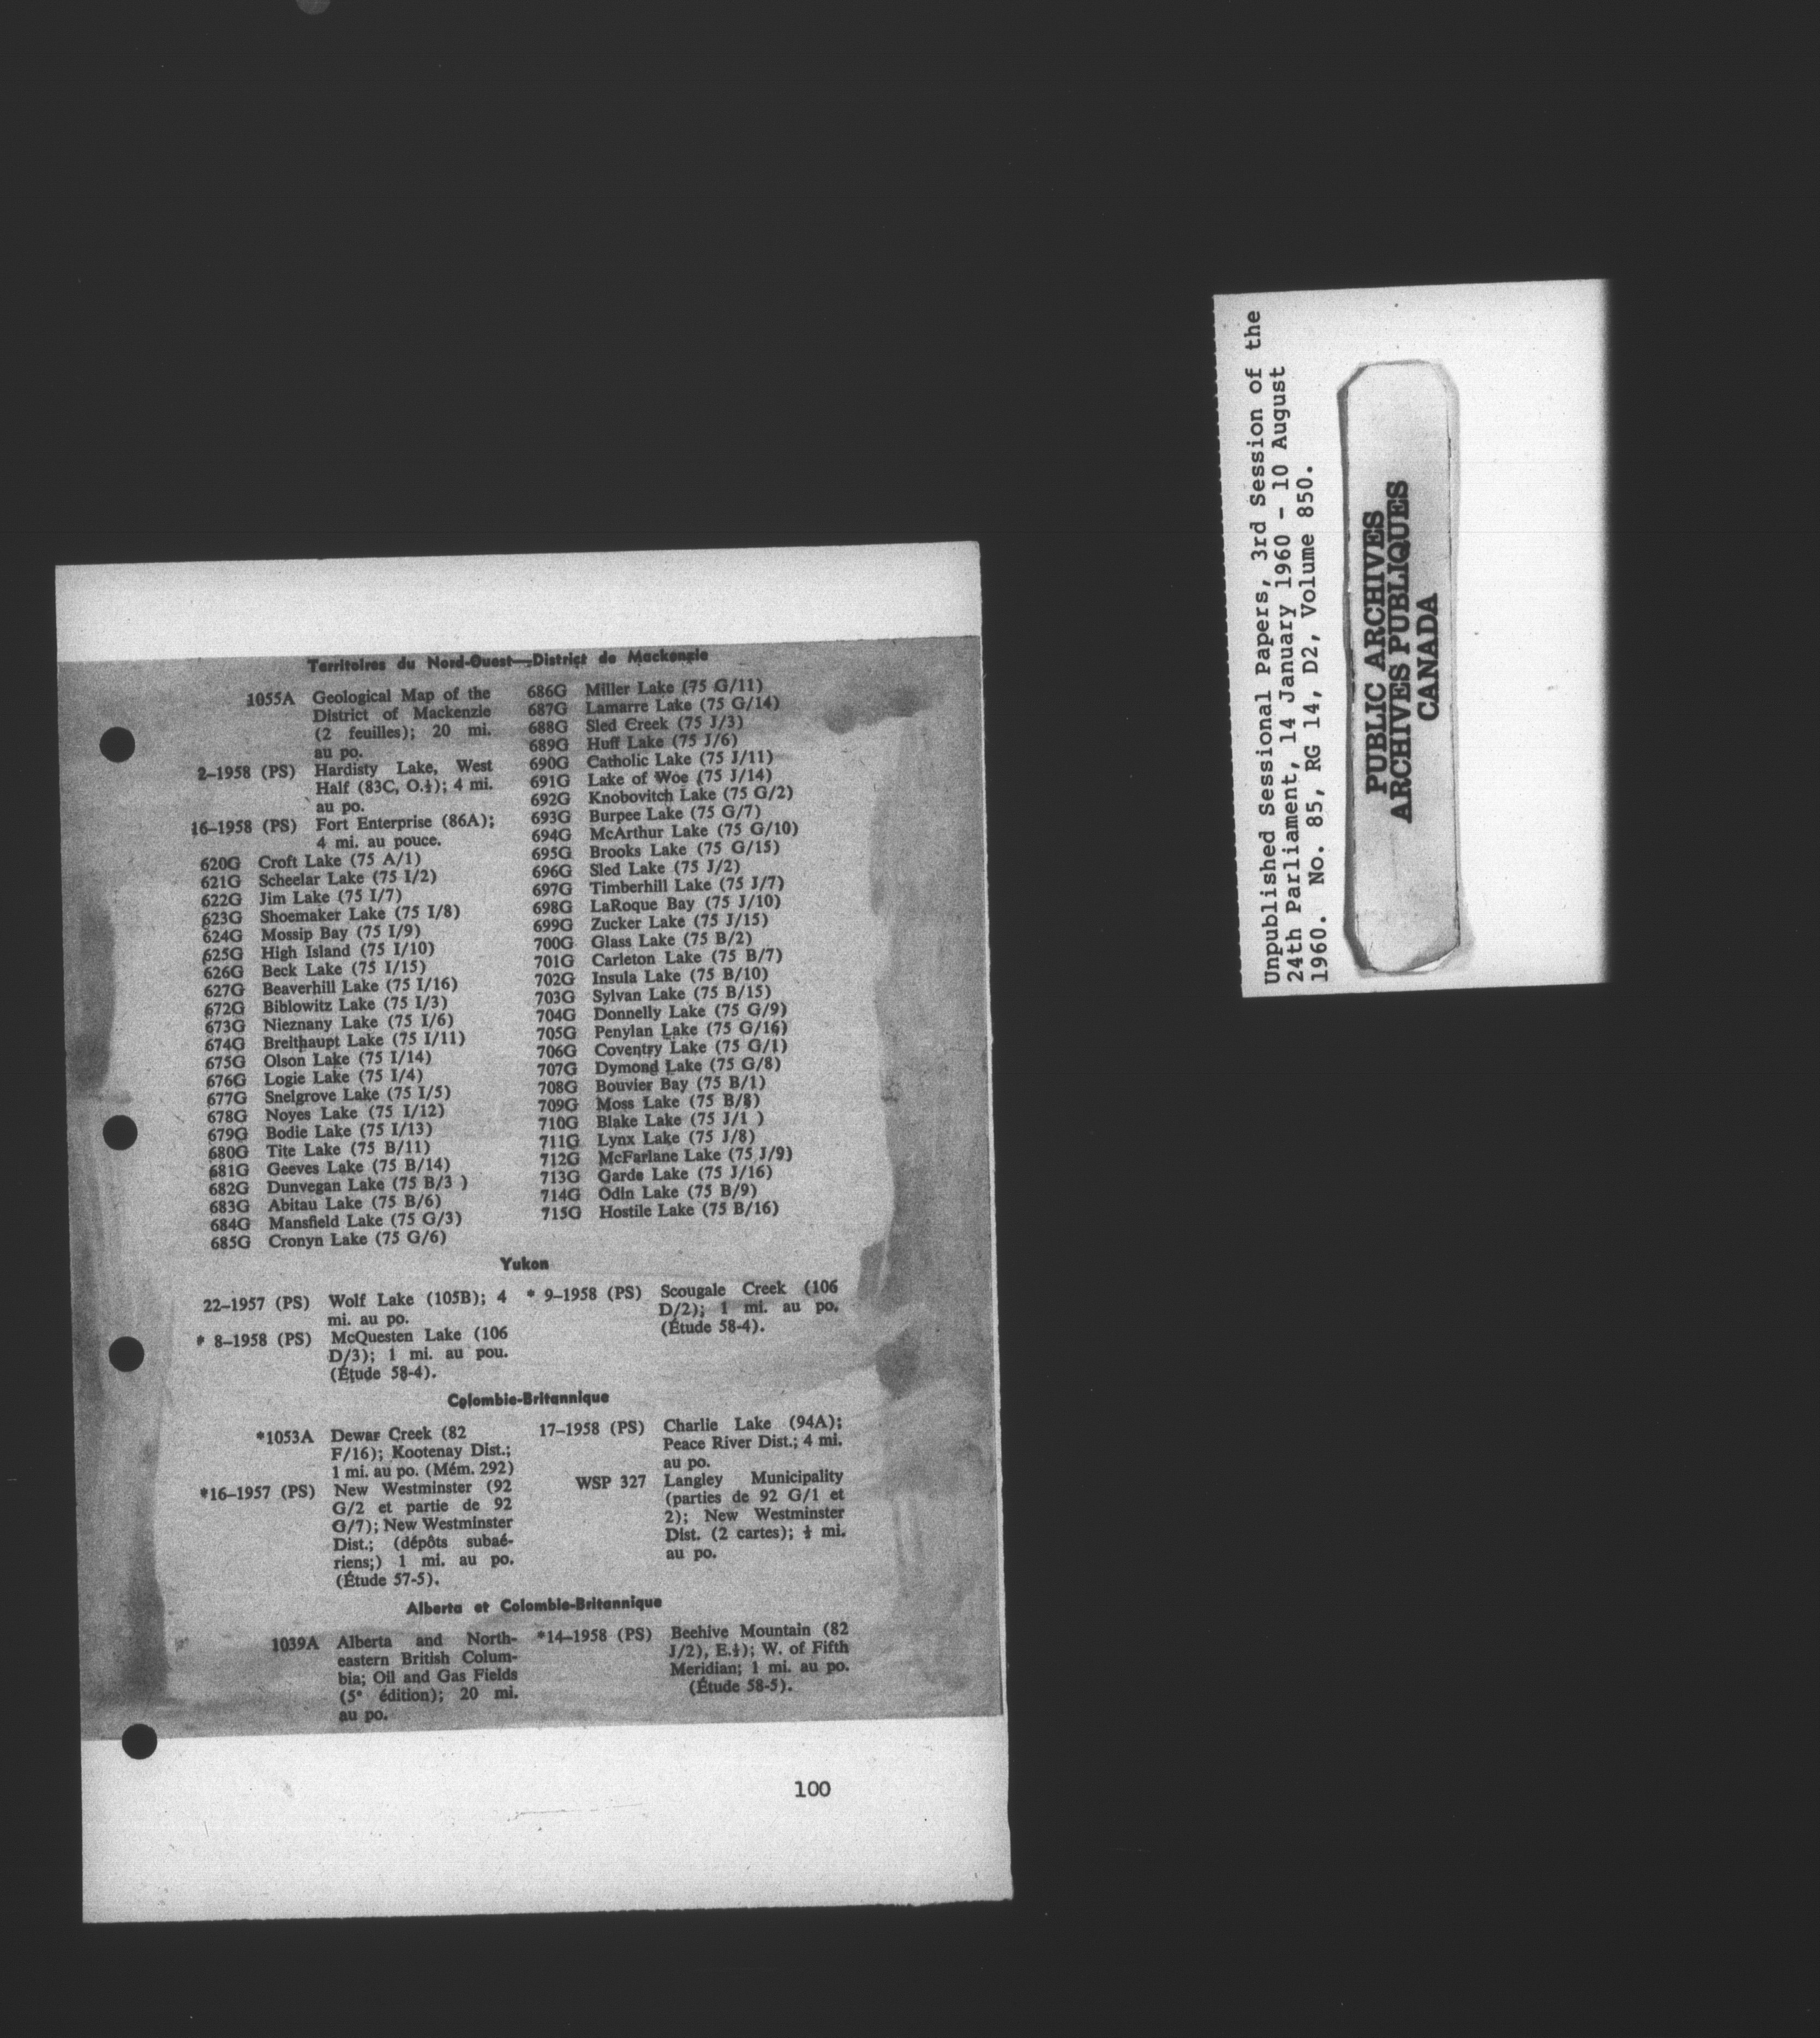 Territoires du Nord-Ouest—District de Mackenzie
1055A Geological Map of the
District of Mackenzie
(2 feuilles); 20 mi.
au po.
2–1958 (PS) Hardisty Lake, West
Half (83C, O.½); 4 mi.
au po.
16–1958 (PS) Fort Enterprise (86A);
4 mi. au pouce.
620G Croft Lake (75 A/1)
621G Scheelar Lake (75 I/2)
622G Jim Lake (75 I/7)
623G Shoemaker Lake (75 I/8)
624G Mossip Bay (75 I/9)
625G High Island (75 I/10)
626G Beck Lake (75 I/15)
627G Beaverhill Lake (75 I/16)
672G Biblowitz Lake (75 I/3)
673G Nieznany Lake (75 I/6)
674G Breithaupt Lake (75 I/11)
675G Olson Lake (75 I/14)
676G Logie Lake (75 I/4)
677G Snelgrove Lake (75 I/5)
678G Noyes Lake (75 I/12)
679G Bodie Lake (75 I/13)
680G Tite Lake (75 B/11)
681G Geeves Lake (75 B/14)
682G Dunvegan Lake (75 B/3 )
683G Abitau Lake (75 B/6)
684G Mansfield Lake (75 G/3)
685G Cronyn Lake (75 G/6)
686G Miller Lake (75 G/11)
687G Lamarre Lake (75 G/14)
688G Sled Creek (75 J/3)
689G Huff Lake (75 J/6)
690G Catholic Lake (75 J/11)
691G Lake of Woe (75 J/14)
692G Knobovitch Lake (75 G/2)
693G Burpee Lake (75 G/7)
694G McArthur Lake (75 G/10)
695G Brooks Lake (75 G/15)
696G Sled Lake (75 J/2)
697G Timberhill Lake (75 J/7)
698G LaRoque Bay (75 J/10)
699G Zucker Lake (75 J/15)
700G Glass Lake (75 B/2)
701G Carleton Lake (75 B/7)
702G Insula Lake (75 B/10)
703G Sylvan Lake (75 B/15)
704G Donnelly Lake (75 G/9)
705G Penylan Lake (75 G/16)
706G Coventry Lake (75 G/1)
707G Dymond Lake (75 G/8)
708G Bouvier Bay (75 B/1)
709G Moss Lake (75 B/8)
710G Blake Lake (75 J/1 )
711G Lynx Lake (75 J/8)
712G McFarlane Lake (75 J/9)
713G Garde Lake (75 J/16)
714G Odin Lake (75 B/9)
715G Hostile Lake (75 B/16)
Yukon
22–1957 (PS) Wolf Lake (105B); 4
mi. au po.
* 8–1958 (PS) McQuesten Lake (106
D/3); 1 mi. au pou.
(Étude 58-4).
* 9–1958 (PS) Scougale Creek (106
D/2); 1 mi. au po.
(Étude 58-4).
Colombie-Britannique
*1053A Dewar Creek (82
F/16); Kootenay Dist.;
1 mi. au po. (Mém. 292)
*16–1957 (PS) New Westminster (92
G/2 et partie de 92
G/7); New Westminster
Dist.; (dépôts subaé-
riens;) 1 mi. au po.
(Étude 57-5).
17–1958 (PS) Charlie Lake (94A);
Peace River Dist.; 4 mi.
au po.
WSP 327 Langley Municipality
(parties de 92 G/1 et
2); New Westminster
Dist. (2 cartes); ½ mi.
au po.
Alberta et Colombie-Britannique
1039A Alberta and North-
eastern British Colum-
bia; Oil and Gas Fields
(5e édition); 20 mi.
au po.
*14–1958 (PS) Beehive Mountain (82
J/2), E.½); W. of Fifth
Meridian; 1 mi. au po.
(Étude 58-5).
100
Unpublished Sessional Papers, 3rd Session of the
24th Parliament, 14 January 1960 - 10 August
1960. No. 85, RG 14, D2, Volume 850.
PUBLIC ARCHIVES
ARCHIVES PUBLIQUES
CANADA